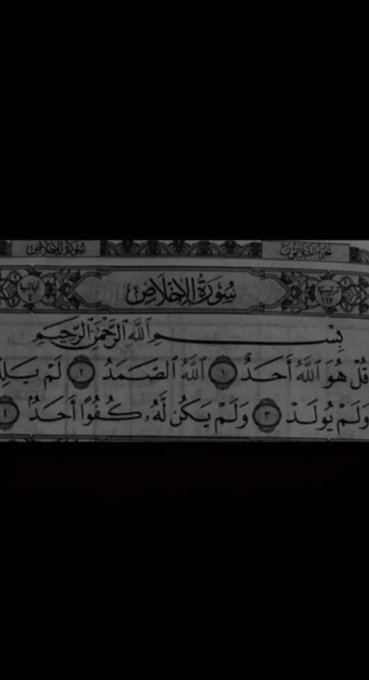 سورة الإخلاص
سُورَةُ الإِخْلَاصِ
بِسْمِ ٱللَّهِ ٱلرَّحْمَٰنِ ٱلرَّحِيمِ
قُلْ هُوَ ٱللَّهُ أَحَدٌ ١ ٱللَّهُ ٱلصَّمَدُ ٢ لَمْ يَلِدْ
وَلَمْ يُولَدْ ٣ وَلَمْ يَكُن لَّهُۥ كُفُوًا أَحَدٌۢ ٤